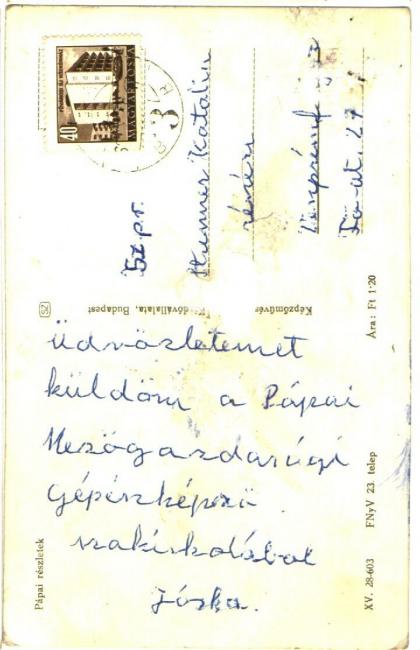 40
MAGYAR POSTA
Szpr.
Hummer Katalin
részére
Fő út. 27
Képzőművészeti Kiadóvállalata, Budapest
Ára: Ft 1·20
üdvözletemet
küldöm a Pápai
Mezőgazdasági
gépészképző
szakiskolából
Jóska.
Pápai részletek
XV. 28-603 FNyV 23. telep